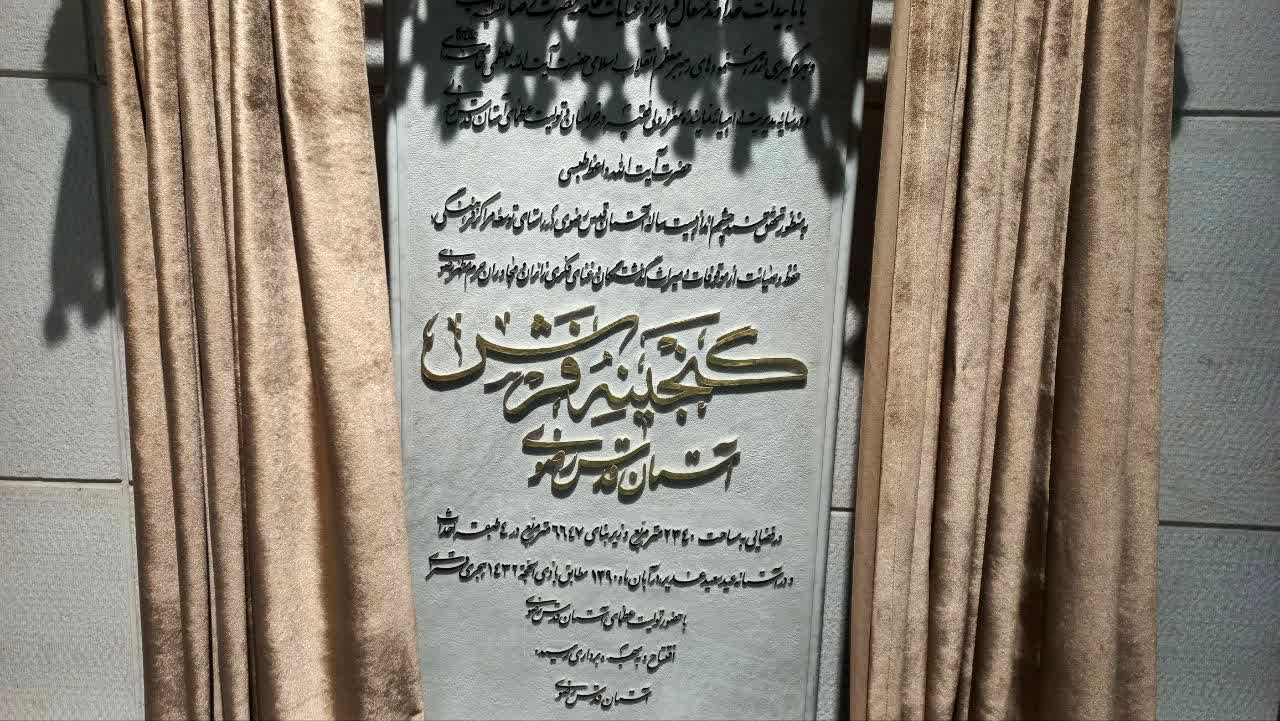 با تأییدات خداوند متعال در پرتو عنایات خاصه حضرت رضا
و بهره‌گیری از رهنمودهای رهبر معظم انقلاب اسلامی حضرت آیت الله العظمی خامنه‌ای
و در سایه مدیریت نماینده معزز ولی فقیه در خراسان و تولیت عظمای آستان قدس رضوی
حضرت آیت الله واعظ طبسی
به منظور تحقق سند چشم انداز بیست ساله آستان قدس رضوی در راستای توسعه مراکز فرهنگی،
حفظ و صیانت از موقوفات و میراث گذشتگان و غنای فکری زائران و مجاوران حرم مطهر رضوی
گنجینه فرش
آستان قدس رضوی
در فضایی به مساحت ۲۳۴۰ متر مربع و زیر بنای ۶۶۴۷ متر مربع در ۴ طبقه احداث
و در آستانه عید سعید غدیر در آبان ماه ۱۳۹۰ مطابق با ذی الحجة ۱۴۳۲ هجری قمری
با حضور تولیت عظمای آستان قدس رضوی
افتتاح و به بهره برداری رسید.
آستان قدس رضوی